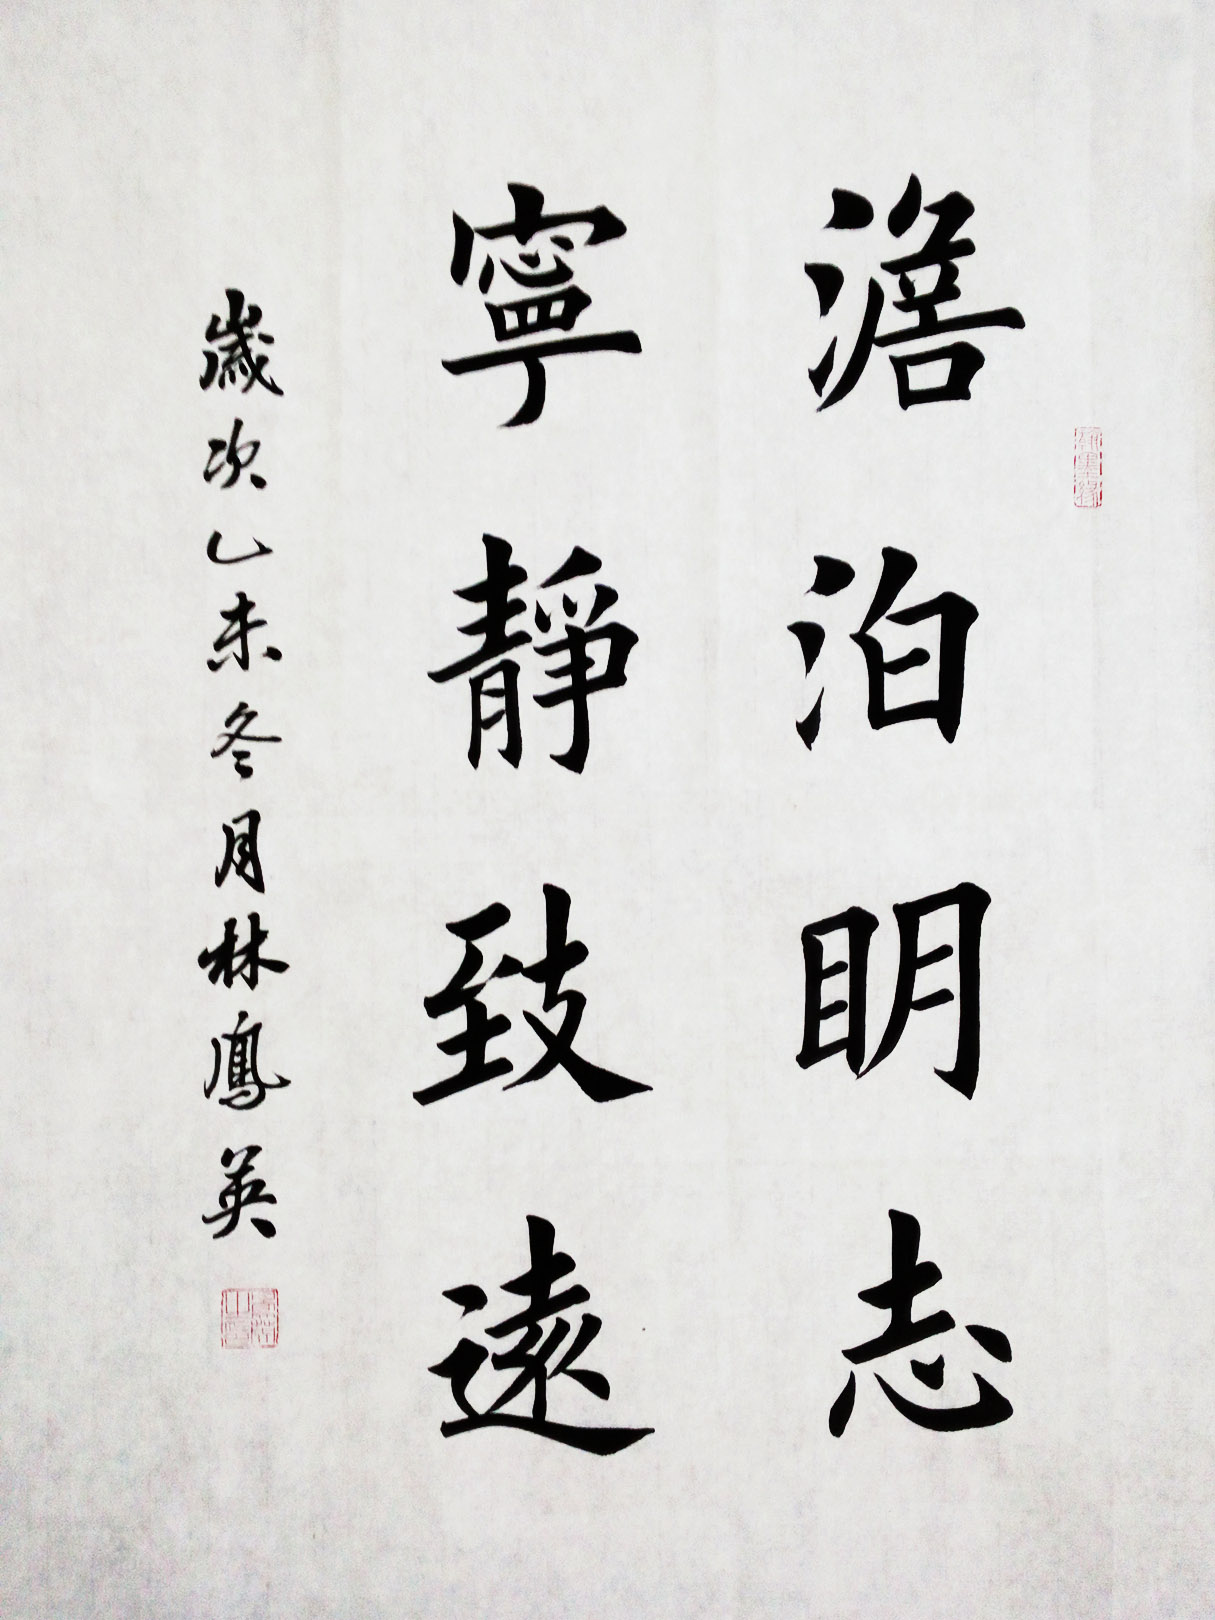 澹泊明志
寧靜致遠
歲次乙未冬月林鳳英